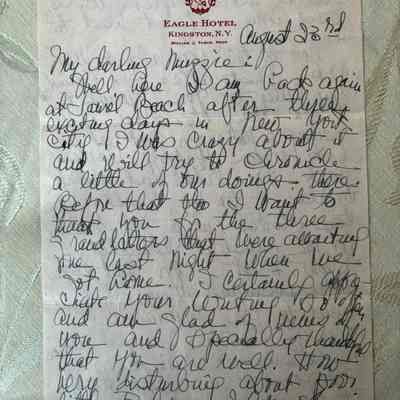 EAGLE HOTEL
KINGSTON, N.Y.
August 23rd
My darling Muggie :
Well here I am back again
at Beach after three
exciting days in New York
City. I was crazy about it
and will try to chronicle
a little of our doings. -
Before that tho I want to
thank you for the three
grand letters that were awaiting
me last night when we
got home. I certainly appre-
ciate your writing so often
and am glad of news of
you and especially thankful
that you are well. How
very disturbing about poor
little